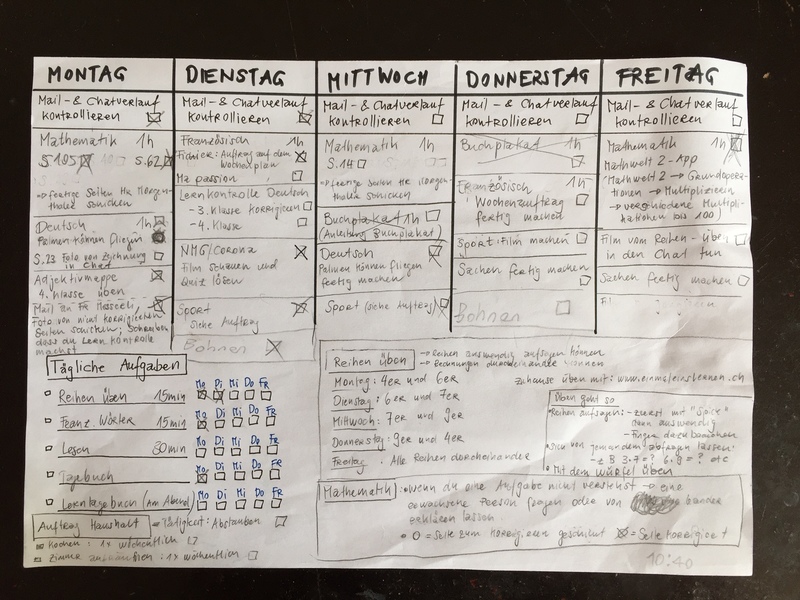 MONTAG
Mail- & Chatverlauf
kontrollieren
Mathematik 1h
S. 105 S. 62
→ fertige Seiten Hr. Morgen-
thaler schicken
Deutsch 1h
Palmen können fliegen
S. 23 Foto von Zeichnung
in Chat
Adjektivmappe
4. Klasse üben
Mail an Fr.
Foto von nicht korrigierten
Seiten schicken; schreiben
dass du Lernkontrolle
machst
DIENSTAG
Mail- & Chatverlauf
kontrollieren
Französisch 1h
Auftrag auf dem
Wochenplan
Ma passion
Lernkontrolle Deutsch
- 3. Klasse korrigieren
- 4. Klasse
NMG/Corona
Film schauen und
Quiz lösen
Sport
siehe Auftrag
Bohnen
MITTWOCH
Mail- & Chatverlauf
kontrollieren
Mathematik 1h
S. 14
→ fertige Seiten Hr. Morgen-
thaler schicken
Buchplakat 1h
(Anleitung Buchplakat)
Deutsch
Palmen können fliegen
fertig machen
Sport (siehe Auftrag)
DONNERSTAG
Mail- & Chatverlauf
kontrollieren
Buchplakat 1h
Französisch 1h
Wochenauftrag
fertig machen
Sport: Film machen
Sachen fertig machen
Bohnen
FREITAG
Mail- & Chatverlauf
kontrollieren
Mathematik 1h
Mathwelt 2-App
Mathwelt 2 → Grundopera-
tionen → Multiplizieren
→ verschiedene Multipli-
kationen (bis 100)
Film vom Reihen-üben
in den Chat tun
Sachen fertig machen
Tägliche Aufgaben
Mo Di Mi Do Fr
Reihen üben 15min
Mo Di Mi Do Fr
Franz. Wörter 15min
Mo Di Mi Do Fr
Lesen 30min
Mo Di Mi Do Fr
Tagebuch
Mo Di Mi Do Fr
Lerntagebuch (Am Abend)
Auftrag Haushalt Tätigkeit: Abstauben
Kochen: 1x wöchentlich
Zimmer aufräumen: 1x wöchentlich
Reihen üben → Reihen auswendig aufsagen können
→ Rechnungen durcheinander können
Montag: 4er und 6er zuhause üben mit: www.einmaleinslernen.ch
Dienstag: 6er und 7er
Mittwoch: 7er und 9er
Donnerstag: 9er und 4er
Freitag: Alle Reihen durcheinander
Üben geht so
Reihen aufsagen: - zuerst mit "Spick"
dann auswendig
- Finger dazu benützen
Sich von jemandem abfragen lassen:
- z.B 3·7=? 6·8=? etc
Mit dem Würfel üben
Mathematik: Wenn du eine Aufgabe nicht verstehst → eine
erwachsene Person fragen oder von
erklären lassen.
O = Seite zum Korrigieren geschickt = Seite korrigiert
10:40